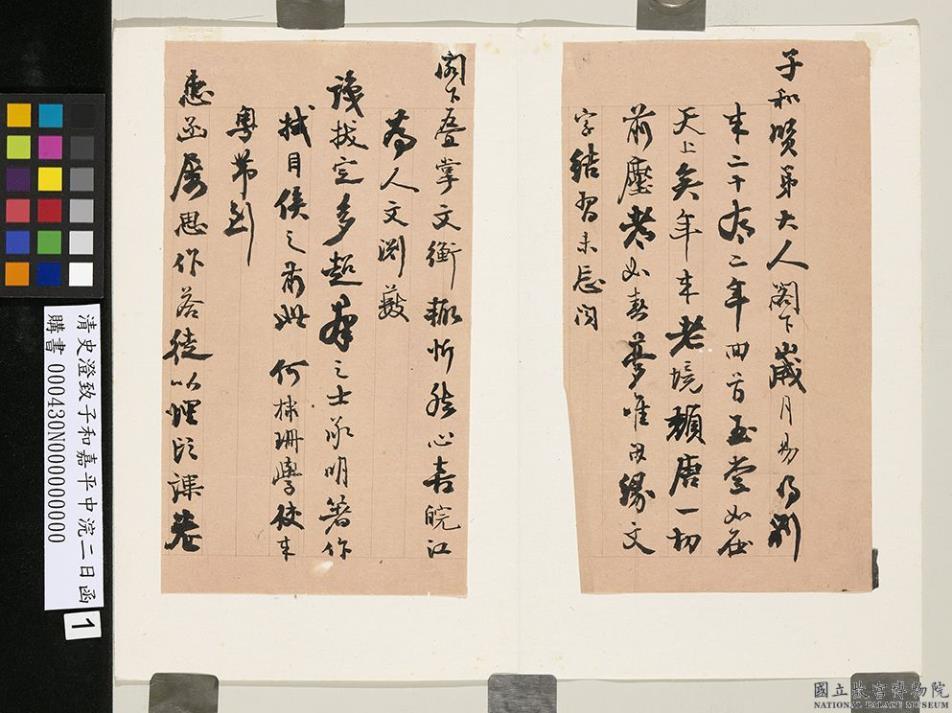 子和賢弟大人閣下歲月易得別
來二十有二年回首玉堂如在
天上矣年來老境頹唐一切
前塵者如春夢唯因緣文
字結習未忘聞
閣下叠掌文衡輒忻然心喜皖江
為人文淵藪
識拔定多超羣之士承明著作
拭目俟之前此何棣珊學使來
粵帶到
惠函屢思作答徒以煙江課卷
清史澄致子和嘉平中浣二日函
購書 000430N000000000
1
國立故宮博物院
NATIONAL PALACE MUSEUM